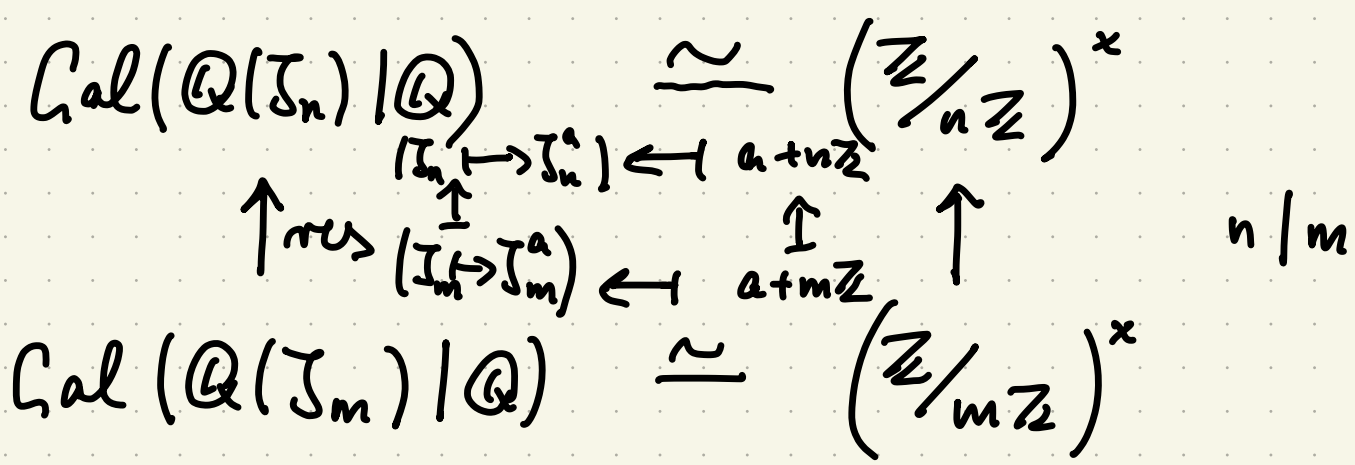 Gal(ℚ(ζₙ)|ℚ) ≅ (ℤ/nℤ)ˣ
(ζₙ ↦ ζₙᵃ) ↤ a+nℤ
↑ res ↥ ↥ ↑ n|m
(ζₘ ↦ ζₘᵃ) ↤ a+mℤ
Gal(ℚ(ζₘ)|ℚ) ≅ (ℤ/mℤ)ˣ